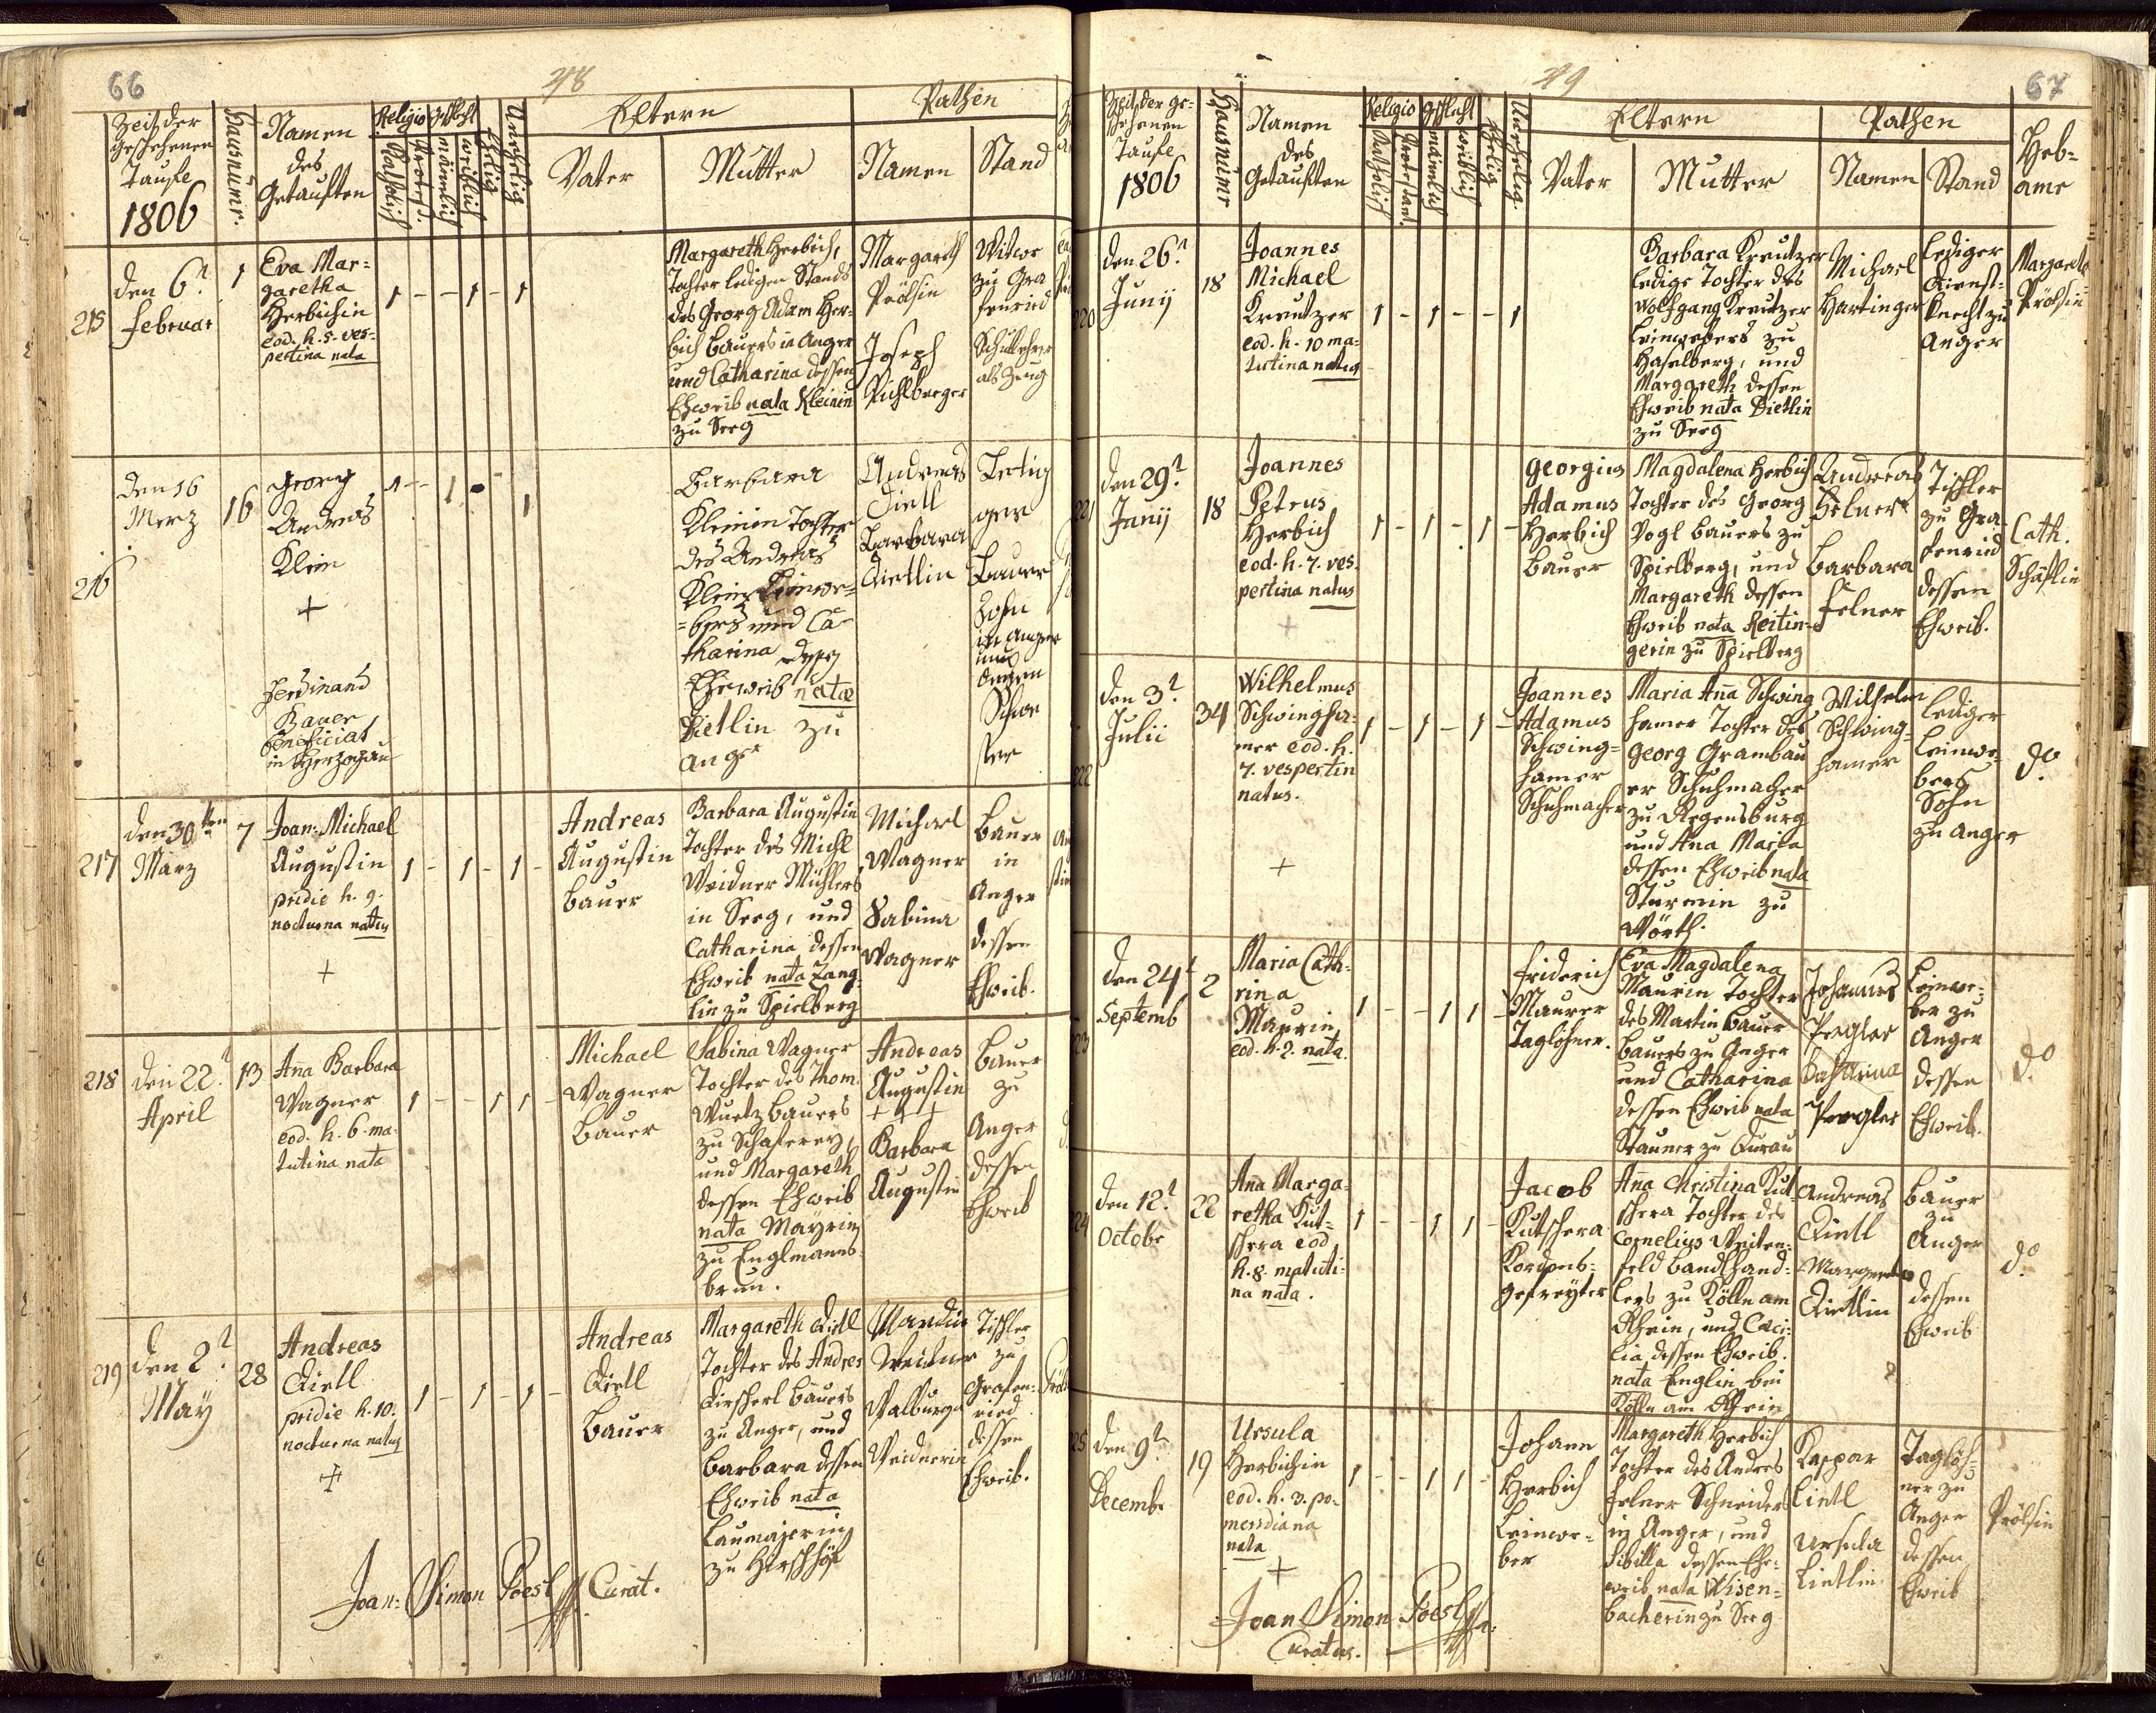 66
48
Zeit der
geschehenen
Taufe
1806
Hausnumr.
Namen
des
Getauften
Religio
Katholisch
Protest.
Gschlecht
mänlich
weiblich
Ehelig
Unehelig
Eltern
Vater
Mutter
Pathen
Namen
Stand
215
den 6t
Februar
1
Eva Mar=
garetha
Herbichin
eod. h. 5. ves=
pertina nata
1 - - 1 - 1
Margareth Herbich,
Tochter ledigen Stands
des Georg Adam Her=
bich Bauers in Anger
und Catharina dessen
Ehweib nata Kleinin
zu Seeg
Margareth
Prölsin
Joseph
Pichlberger
Witwe
zu Gra
fenried
Schullehrer
als Zeug
216
den 16
Merz
16
Georg
Andreas
Klein
+
Ferdinand
Bauer
Beneficiat
in Herzogau
1 - - 1 - 1
Barbara
Kleinin Tochter
des Andreas
Klein Leinwe=
=bers und Ca=
tharina dessen
Eheweib nata
Dietlin zu
Anger
Andreas
Dietl
Barbara
Dietlin
Bauer
Sohn
in Anger
und
dessen
Schwe
ster
217
den 30ten
Marz
7
Joan: Michael
Augustin
pridie h. 9.
nocturna natus
+
1 - 1 - 1 -
Andreas
Augustin
Bauer
Barbara Augustin
Tochter des Michl
Weidner Mühlers
in Seeg, und
Catharina dessen
Ehweib nata Zang
lin zu Spielberg
Michael
Wagner
Sabina
Wagner
Bauer
in
Anger
dessen
Ehweib.
218
den 22t
April
13
Anna Barbara
Wagner
eod. h. 6. ma=
tutina nata
1 - - 1 1 -
Michael
Wagner
Bauer
Sabina Wagner
Tochter des Thom.
Wurtz Bauers
zu Schaferey,
und Margareth
dessen Ehweib
nata Mayrin
zu Englmanns=
brun.
Andreas
Augustin
+ + +
Barbara
Augustin
Bauer
zu
Anger
dessen
Ehweib
219
den 2t
May
28
Andreas
Dietl
pridie h. 10.
nocturna natus
+
1 - 1 - 1 -
Andreas
Dietl
Bauer
Margareth Dietl
Tochter des Andres
Kirschl Bauers
zu Anger, und
Barbara dessen
Ehweib nata
Laumajerin
zu Hirschhöf
Martin
Weidner
Walburga
Weidnerin
Tischler
zu
Grafen=
ried
dessen
Ehweib.
Joan: Simon Poesl Curat.
49
67
Zeit der ge=
schehenen
Taufe
1806
Hausnumr
Namen
des
Getauften
Religio
Katholisch
Protestant.
Gschlecht
mänlich
weiblich
Ehelig
Unehelig.
Eltern
Vater
Mutter
Pathen
Namen
Stand
Heb=
ame
220
den 26t
Junij
18
Joannes
Michael
Kreutzer
eod. h. 10 ma=
tutina natus
1 - 1 - - 1
Barbara Kreutzer
ledige Tochter des
Wolfgang Kreutzer
Leinwebers zu
Haselberg, und
Margareth dessen
Ehweib nata Dietlin
zu Seeg
Michael
Hartinger
Lediger
Dienst=
knecht zu
Anger
Margareth
Prölsin
221
den 29t
Junij
18
Joannes
Petrus
Herbich
eod. h. 7. ves=
pertina natus
+
1 - 1 - 1 -
Georgius
Adamus
Herbich
Bauer
Magdalena Herbich
Tochter des Georg
Vogl Bauers zu
Spielberg, und
Margareth dessen
Ehweib nata Reitin=
gerin zu Spielberg
Andreas
Felner
Barbara
Felner
Tischler
zu Gra
fenried
dessen
Ehweib.
Cath.
Schäflin
222
den 3t
Julii
34
Wilhelmus
Schwingha=
mer eod. h.
7. vespertin
natus.
+
1 - 1 - 1 -
Joannes
Adamus
Schwing=
hamer
Schuhmacher
Maria Anna Schwing
hamer Tochter des
Georg Grambau
er Schuhmacher
zu Regensburg
und Ana Maria
dessen Ehweib nata
Sturmin zu
Wörth.
Wilhelm
Schwing=
hamer
lediger
Leinwe=
bers
Sohn
zu Anger
do
den 24t
Septemb
2
Maria Cath=
rina
Maurin
eod. h. 2. nata.
1 - - 1 1 -
Friderich
Maurer
Taglöhner.
Eva Magdalena
Maurin Tochter
des Martin Bauer
Bauers zu Anger
und Catharina
dessen Ehweib nata
Stauner zu Aurau
Johannes
Pergler
Catharina
Pergler
Leinwe=
ber zu
Anger
dessen
Ehweib.
do
den 12t
Octobr
22
Anna Marga=
retha Kut=
schera eod
h. 8. matuti=
na nata.
1 - - 1 1 -
Jacob
Kutschera
Kordons=
gefreyter
Anna Christina Kut
schera Tochter des
Cornelius Weiten=
feld Bandlhand=
lers zu Kölln am
Rhein, und Cäci=
lia dessen Ehweib.
nata Englin bei
Kölln am Rhein
Andreas
Dietl
Margareta
Dietlin
Bauer
zu
Anger
dessen
Ehweib
do
den 9t
Decembr
19
Ursula
Herbichin
eod. h. 3. po=
meridiana
nata
+
1 - - 1 1 -
Johann
Herbich
Leinwe=
ber
Margareth Herbich
Tochter des Andres
Felner Schneiders
in Anger, und
Sibilla dessen Ehe=
weib nata Wisen=
bacherin zu Seeg
Kaspar
Lintl
Ursula
Lintlin
Taglöh=
ner zu
Anger
dessen
Ehweib
Prölsin
Joan Simon Poesl
Curatus.